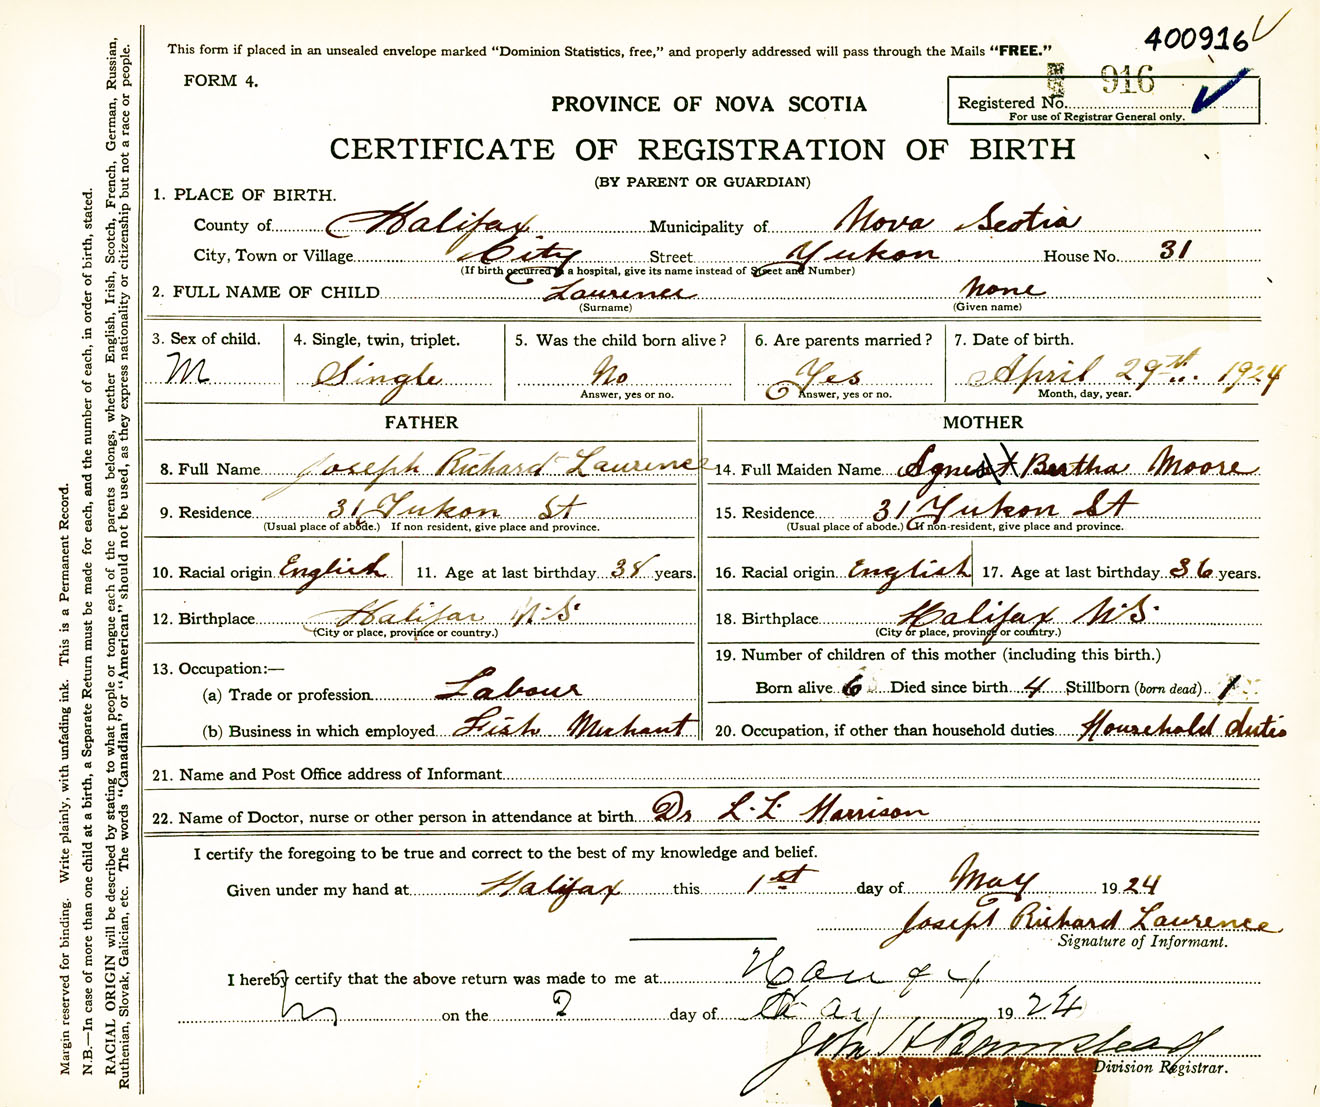 This form if placed in an unsealed envelope marked "Dominion Statistics, free," and properly addressed will pass through the Mails "FREE."
400916
FORM 4.
916
Registered No.
For use of Registrar General only.
PROVINCE OF NOVA SCOTIA
CERTIFICATE OF REGISTRATION OF BIRTH
(BY PARENT OR GUARDIAN)
1. PLACE OF BIRTH.
County of Halifax Municipality of Nova Scotia
City, Town or Village City Street Yukon House No. 31
(If birth occurred in a hospital, give its name instead of Street and Number)
2. FULL NAME OF CHILD Laurence None
(Surname) (Given name)
3. Sex of child. 4. Single, twin, triplet. 5. Was the child born alive? 6. Are parents married? 7. Date of birth.
M Single No Yes April 29th 1924
Answer, yes or no. Answer, yes or no. Month, day, year.
FATHER MOTHER
8. Full Name Joseph Richard Laurence 14. Full Maiden Name Agnes Bertha Moore
9. Residence 31 Yukon St 15. Residence 31 Yukon St
(Usual place of abode.) If non resident, give place and province. (Usual place of abode.) If non-resident, give place and province.
10. Racial origin English 11. Age at last birthday 38 years. 16. Racial origin English 17. Age at last birthday 36 years.
12. Birthplace Halifax N.S. 18. Birthplace Halifax N.S.
(City or place, province or country.) (City or place, province or country.)
13. Occupation:— 19. Number of children of this mother (including this birth.)
(a) Trade or profession Labour Born alive 6 Died since birth 4 Stillborn (born dead) 1
(b) Business in which employed Fish Merchant 20. Occupation, if other than household duties Household duties
21. Name and Post Office address of Informant
22. Name of Doctor, nurse or other person in attendance at birth Dr L.L. Harrison
I certify the foregoing to be true and correct to the best of my knowledge and belief.
Given under my hand at Halifax this 1st day of May 1924
Joseph Richard Laurence
Signature of Informant.
I hereby certify that the above return was made to me at
on the 2 day of May 1924
John H
Division Registrar.
Margin reserved for binding. Write plainly, with unfading ink. This is a Permanent Record.
N.B.—In case of more than one child at a birth, a Separate Return must be made for each, and the number of each, in order of birth, stated.
RACIAL ORIGIN will be described by stating to what people or tongue each of the parents belongs, whether English, Irish, Scotch, French, German, Russian,
Ruthenian, Slovak, Galician, etc. The words "Canadian" or "American" should not be used, as they express nationality or citizenship but not a race or people.